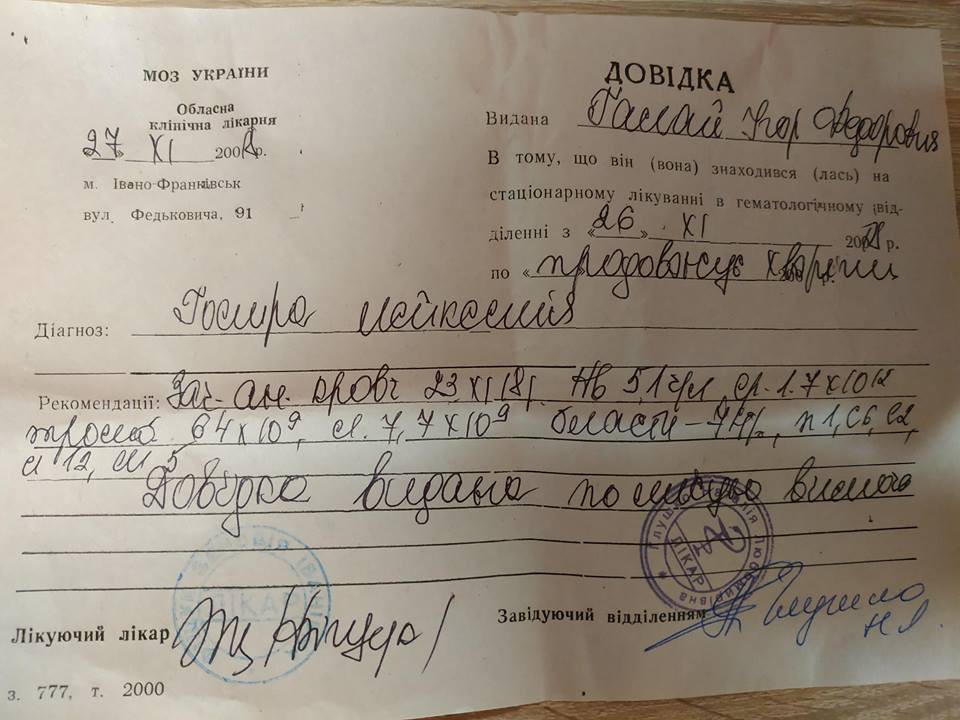 МОЗ УКРАЇНИ
Обласна
клінічна лікарня
27 XI 200 р.
м. Івано-Франківськ
вул. Федьковича, 91
ДОВІДКА
Видана Ігор Федорович
В тому, що він (вона) знаходився (лась) на
стаціонарному лікуванні в гематологічному від-
діленні з «26» XI 200 р.
по « продовжує хворіти
Діагноз: Гостра лейкемія
Рекомендації: Заг. ан. крові 23 XI 18р. Hb 51 г/л, ер. 1.7x10¹²
тромб 64x10⁹, 7,7x10⁹ бласти - 74%, п1, с6, е2,
12, 5
Довідка видана по місцю вимоги
ЛІКАР
Лікуючий лікар
Завідуючий відділенням Глушко
Н.Л.
з. 777, т. 2000